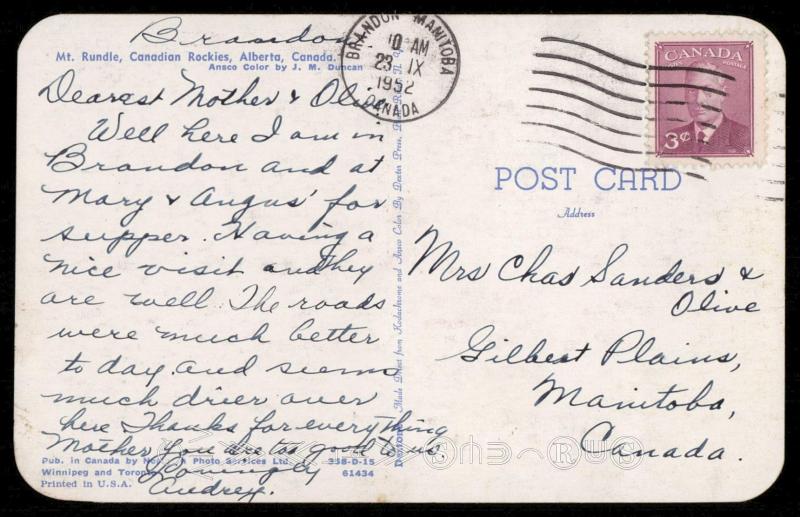 Brandon
Mt. Rundle, Canadian Rockies, Alberta, Canada.
Ansco Color by J. M. Duncan
Dearest Mother & Olive,
Well here I am in
Brandon and at
Mary & Angus' for
supper. Having a
nice visit and they
are well. The roads
were much better
to day and seems
much drier over
here Thanks for everything
Mother, you are too good to us.
Lovingly
Audrey.
Pub. in Canada by Photo Services Ltd.
Winnipeg and Toronto
Printed in U.S.A.
358-D-15
61434
Made Direct from Kodachrome and Ansco Color By Dexter Press,
BRANDON MANITOBA
10 AM
23 IX
1952
CANADA
CANADA
POSTES POSTAGE
3¢
POST CARD
Address
Mrs Chas Sanders &
Olive
Gilbert Plains,
Manitoba,
Canada.